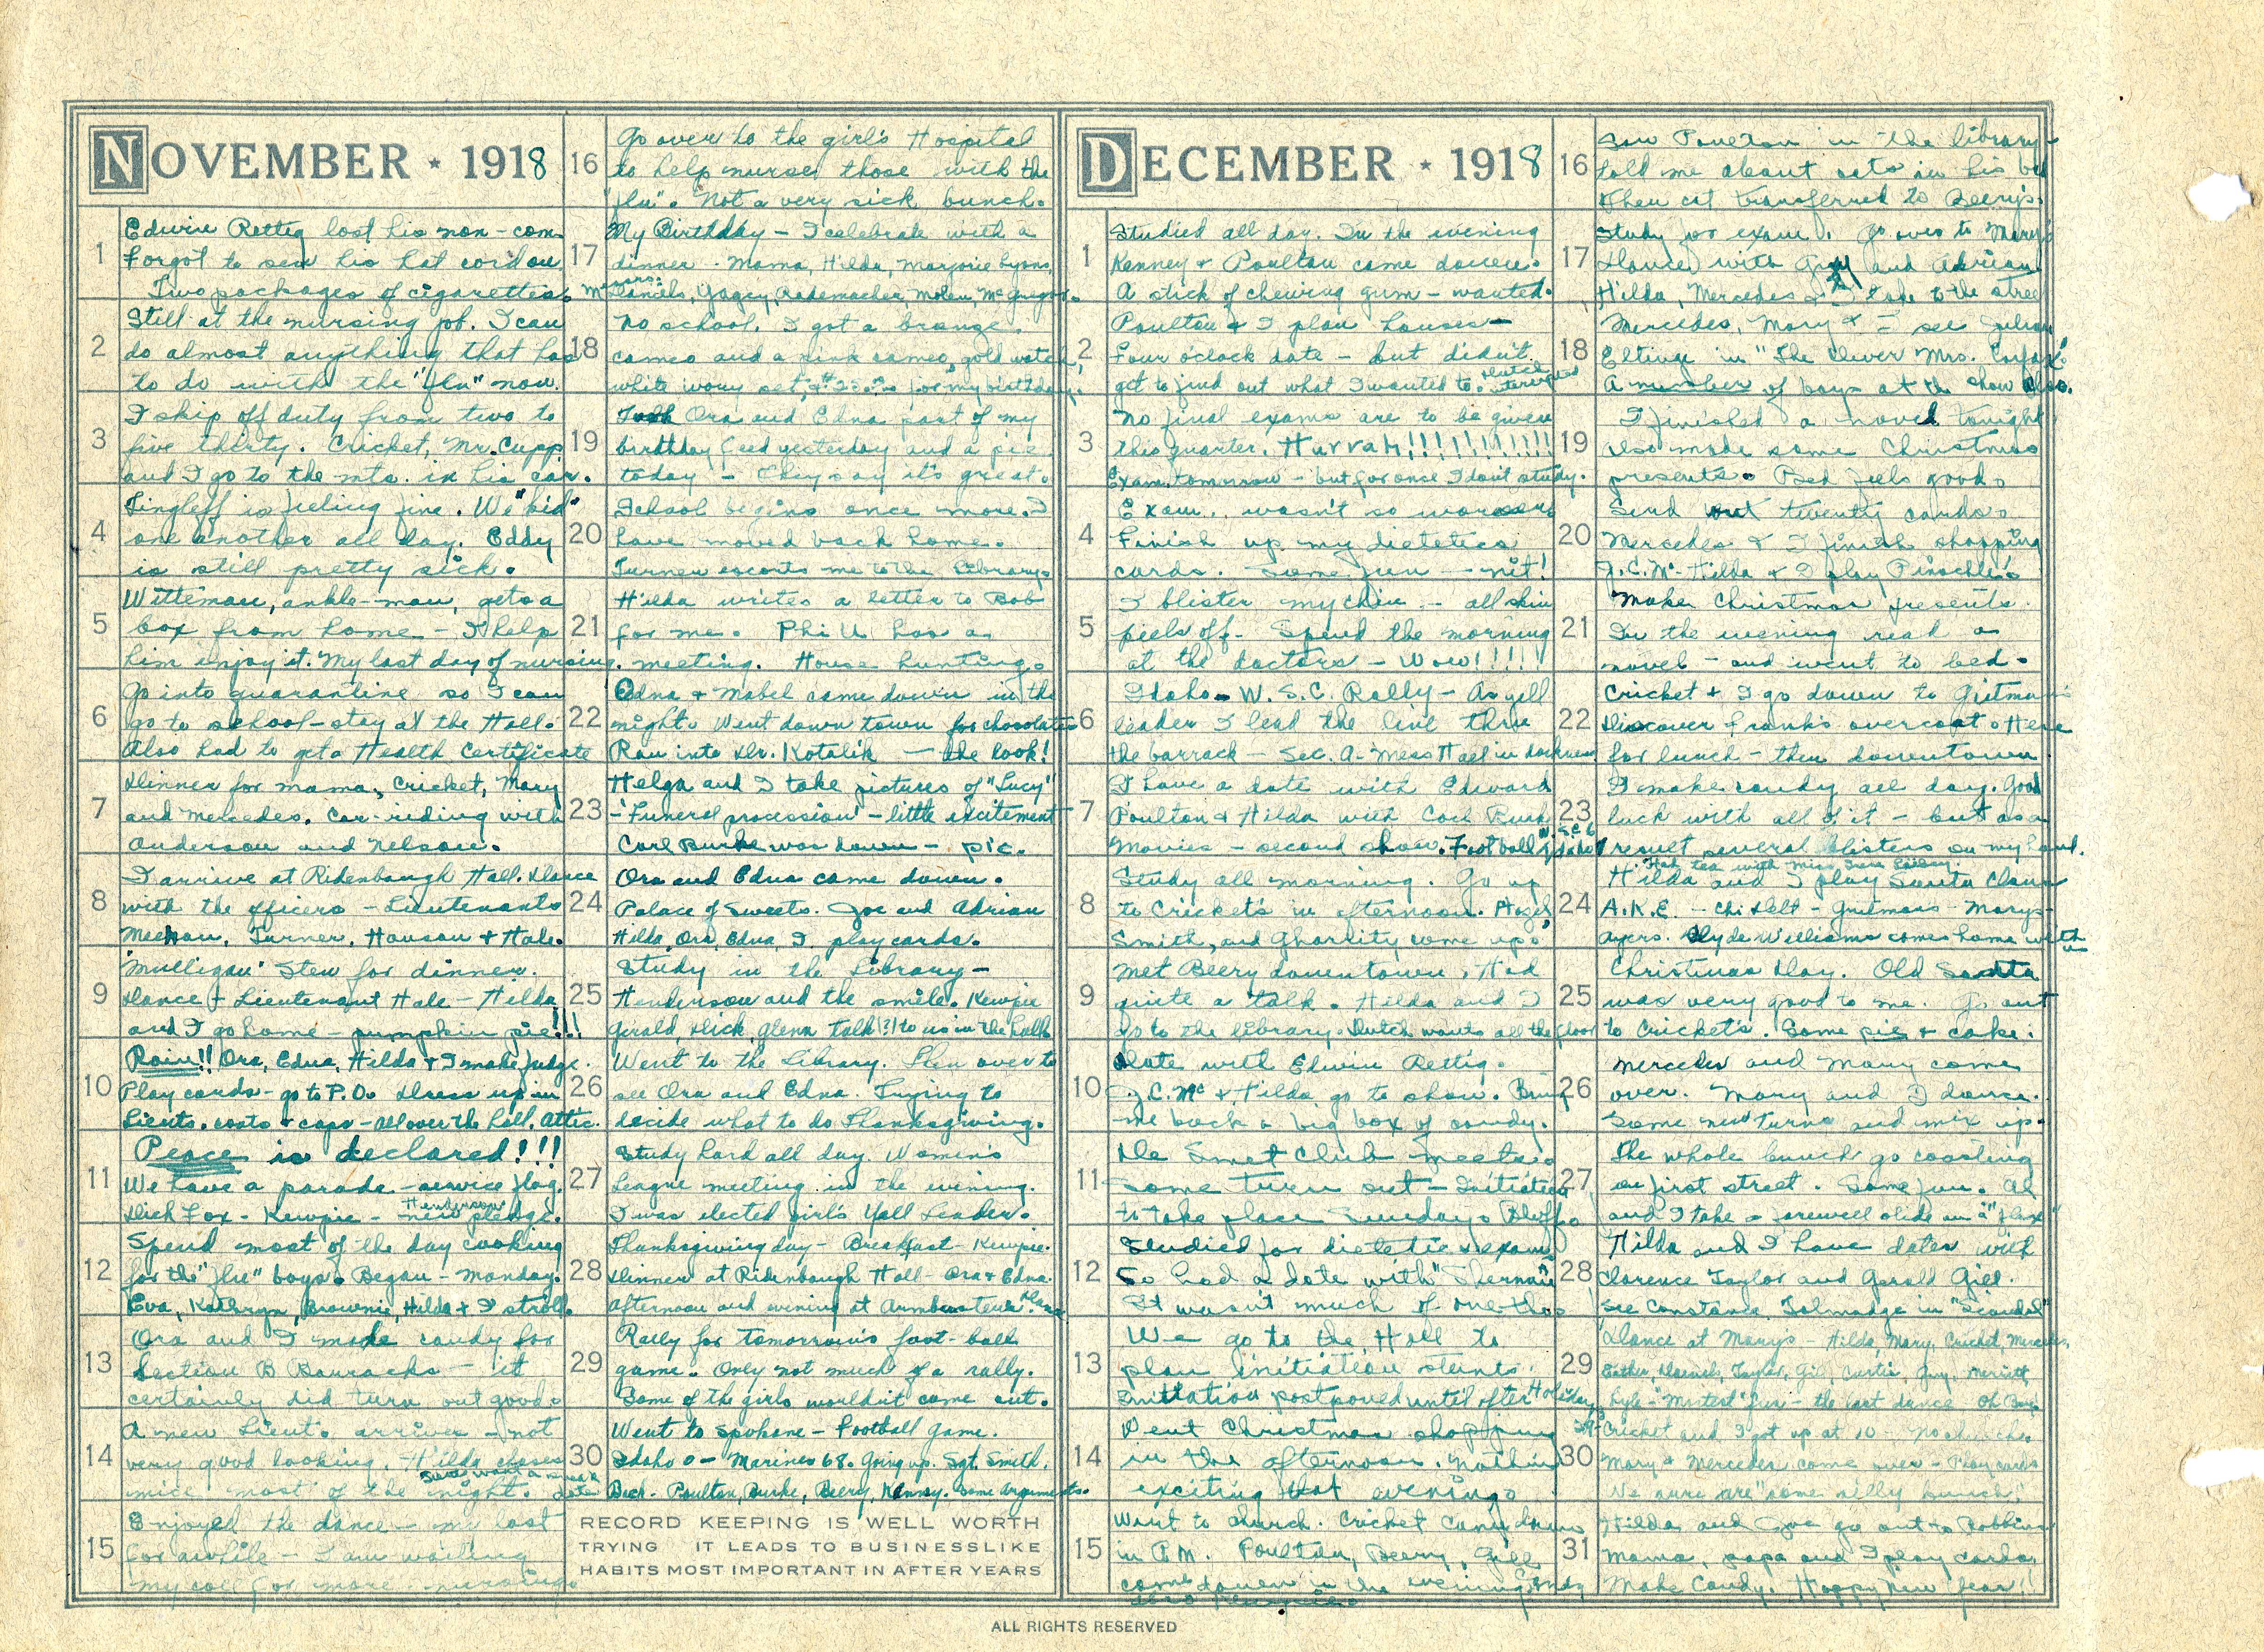 NOVEMBER ★ 1918
1
Edwin Rettig lost his non-com
Forgot to sew his hat cord on
Two packages of cigarettes.
2
Still at the nursing job. I can
do almost anything that has
to do with the "flu" now.
3
I skip off duty from two to
five thirty. Cricket, Mr. Cupp
and I go to the mts. in his car.
4
Tingleff is feeling fine. We "kid"
one another all day. Eddy
is still pretty sick.
5
Witteman, ankle-man, gets a
box from home - I help
him enjoy it. My last day of nursing.
6
Go into quarantine so I can
go to school - stay at the Hall.
Also had to get a Health Certificate
7
Dinner for mama, Cricket, Mary
and Mercedes. Car-riding with
Anderson and Nelson.
8
I arrive at Ridenbaugh Hall. Dance
with the officers - Lieutenants
Meehan, Turner, Hanson & Hale.
9
"Mulligan" Stew for dinner.
Dance - Lieutenant Hale - Hilda
and I go home - pumpkin pie!!!
10
Rain!! Ora, Edna, Hilda & I make fudge.
Play cards - go to P.O. Dress up in
Lieuts. coats & caps - all over the hall. Attic.
11
Peace is declared!!!
We have a parade - service flag.
Dick Fox - Kewpie - new pledge.
Henderson
12
Spend most of the day cooking
for the "flu" boys. Began - Monday.
Eva, Kathryn, Brownie, Hilda & I stroll.
13
Ora and I made candy for
Section B Barracks - it
certainly did turn out good.
14
A new Lieut. arrives - not
very good looking. Hilda chases
mice most of the night.
15
Enjoyed the dance - my last
for awhile - I am waiting
my call for more nursing.
16
Go over to the girl's Hospital
to help nurse those with the
"flu". Not a very sick bunch.
17
My Birthday - I celebrate with a
dinner - Mama, Hilda, Marjorie Lyons,
Daniels, Yagey, Rademacher, Molen, McGregor.
18
No school. I got a bronze
cameo and a pink cameo, gold watch,
white ivory set, for my birthday.
19
Took Ora and Edna part of my
birthday feed yesterday and a pie
today - They say it's great.
20
School begins once more. I
have moved back home.
Turner escorts me to the Library.
21
Hilda writes a letter to Bob
for me. Phi U has a
meeting. House hunting.
22
Edna & Mabel came down in the
night. Went down town for chocolates
Ran into Dr. Kotalik - the look!
23
Helga and I take pictures of "Lucy"
- 'Funeral procession' - little excitement
Carl Burke was down - pic.
24
Ora and Edna came down.
Palace of Sweets. Joe and Adrian
Hilda, Ora, Edna, I play cards.
25
Study in the Library -
Henderson and the smile. Kewpie
Gerald, Dick, Glenn talk (?) to us in the halls
26
Went to the Library. Then over to
see Ora and Edna. Trying to
decide what to do Thanksgiving.
27
Study hard all day. Women's
League meeting in the evening.
I was elected girl's Yell Leader.
28
Thanksgiving day - Breakfast - Kewpie.
Dinner at Ridenbaugh Hall - Ora & Edna.
Afternoon and evening at
29
Rally for tomorrow's foot-ball
game. Only not much of a rally.
Some of the girls wouldn't come out.
30
Went to Spokane - Football game.
Idaho 0 - Marines 68. Going up. Sgt. Smith,
Beck. Poulton, Burke, Beery, Kenney. Some arguments.
RECORD KEEPING IS WELL WORTH
TRYING IT LEADS TO BUSINESSLIKE
HABITS MOST IMPORTANT IN AFTER YEARS
DECEMBER ★ 1918
1
Studied all day. In the evening
Kenney & Poulton came down.
A stick of chewing gum - wanted.
2
Poulton & I plan houses -
Four o'clock date - but didn't
get to find out what I wanted to. Dutch interrupted
3
No final exams are to be given
this quarter. Hurrah!!!!!!!!!!!!
Exam. tomorrow - but for once I don't study.
4
Exam. wasn't so
Finish up my dietetics
cards. Some fun - nit!
5
I blister my chin - all skin
peels off. Spend the morning
at the doctors - Wow!!!!!
6
Idaho - W.S.C. Rally - As yell
leader I lead the line thru
the barrack - Sec. A - Mess Hall in darkness
7
I have a date with Edward
Poulton & Hilda with Carl Burke
Movies - second show. Football
8
Study all morning. Go up
to Cricket's in afternoon. Hazel
Smith, and Ghormley come up.
9
Met Beery downtown, Had
quite a talk. Hilda and I
go to the library. Dutch wants all the floor
10
Date with Edwin Rettig.
J.C. Mc & Hilda go to show. Bring
me back a big box of candy.
11
De Smet Club meets.
Some turn out - Initiation
to take place Sunday.
12
Studied for dietetics exam.
So had a date with "Sherman"
It wasn't much of one tho
13
We go to the Hall to
plan initiation stunts.
Initiation postponed until after Holidays
14
Went Christmas shopping
in the afternoon. Nothing
exciting that evening.
15
Went to church. Cricket came down
in P.M. Poulton, Beery, Gill
came down in the evening.
16
Saw Poulton in the library -
told me about cats in his bed
then cat transferred to Beery's.
17
Study for exam. Go over to Mary's
Dance with Guy and Adrian
Hilda, Mercedes & I take to the street
18
Mercedes, Mary & I see Julian
Eltinge in "The Clever Mrs. Carfax"
A number of boys at the show also.
19
I finished a novel tonight
also made some Christmas
presents. Bed feels good.
20
Send out twenty cards.
Mercedes & I finish shopping
J.C. Mc - Hilda & I play Pinochle.
21
Make Christmas presents.
In the evening read a
novel - and went to bed.
22
Cricket & I go down to
Discover Frank's overcoat. Here
for lunch - then downtown.
23
I make candy all day. Good
luck with all of it - but as a
result several blisters on my hand.
24
Had tea with Miss
Hilda and I play Santa Claus
A.K.E. - Chi Delt - - Marys -
Ayers. Clyde Williams comes home with us
25
Christmas Day. Old Santa
was very good to me. Go out
to Cricket's. Some pie & cake.
26
Mercedes and Mary come
over. Mary and I dance.
Some new turns and mix ups.
27
The whole bunch go coasting
on first street. Some fun. Al
and I take a farewell slide on a "flex"
28
Hilda and I have dates with
Clarence Taylor and Gerald Gill.
See Constance Talmadge in "Scandal"
29
Dance at Mary's - Hilda, Mary, Cricket, Mercedes,
Esther, Daniels, Taylor, Gill, Curtis, Guy, Merritt,
Lyle - fun - the last dance Oh Boy
30
Cricket and I got up at 10 - No church.
Mary & Mercedes come over - Play cards
We sure are "some silly bunch."
31
Hilda and Joe go out to Robbins
Mama, papa and I play cards,
Make Candy. Happy New Year!!
ALL RIGHTS RESERVED